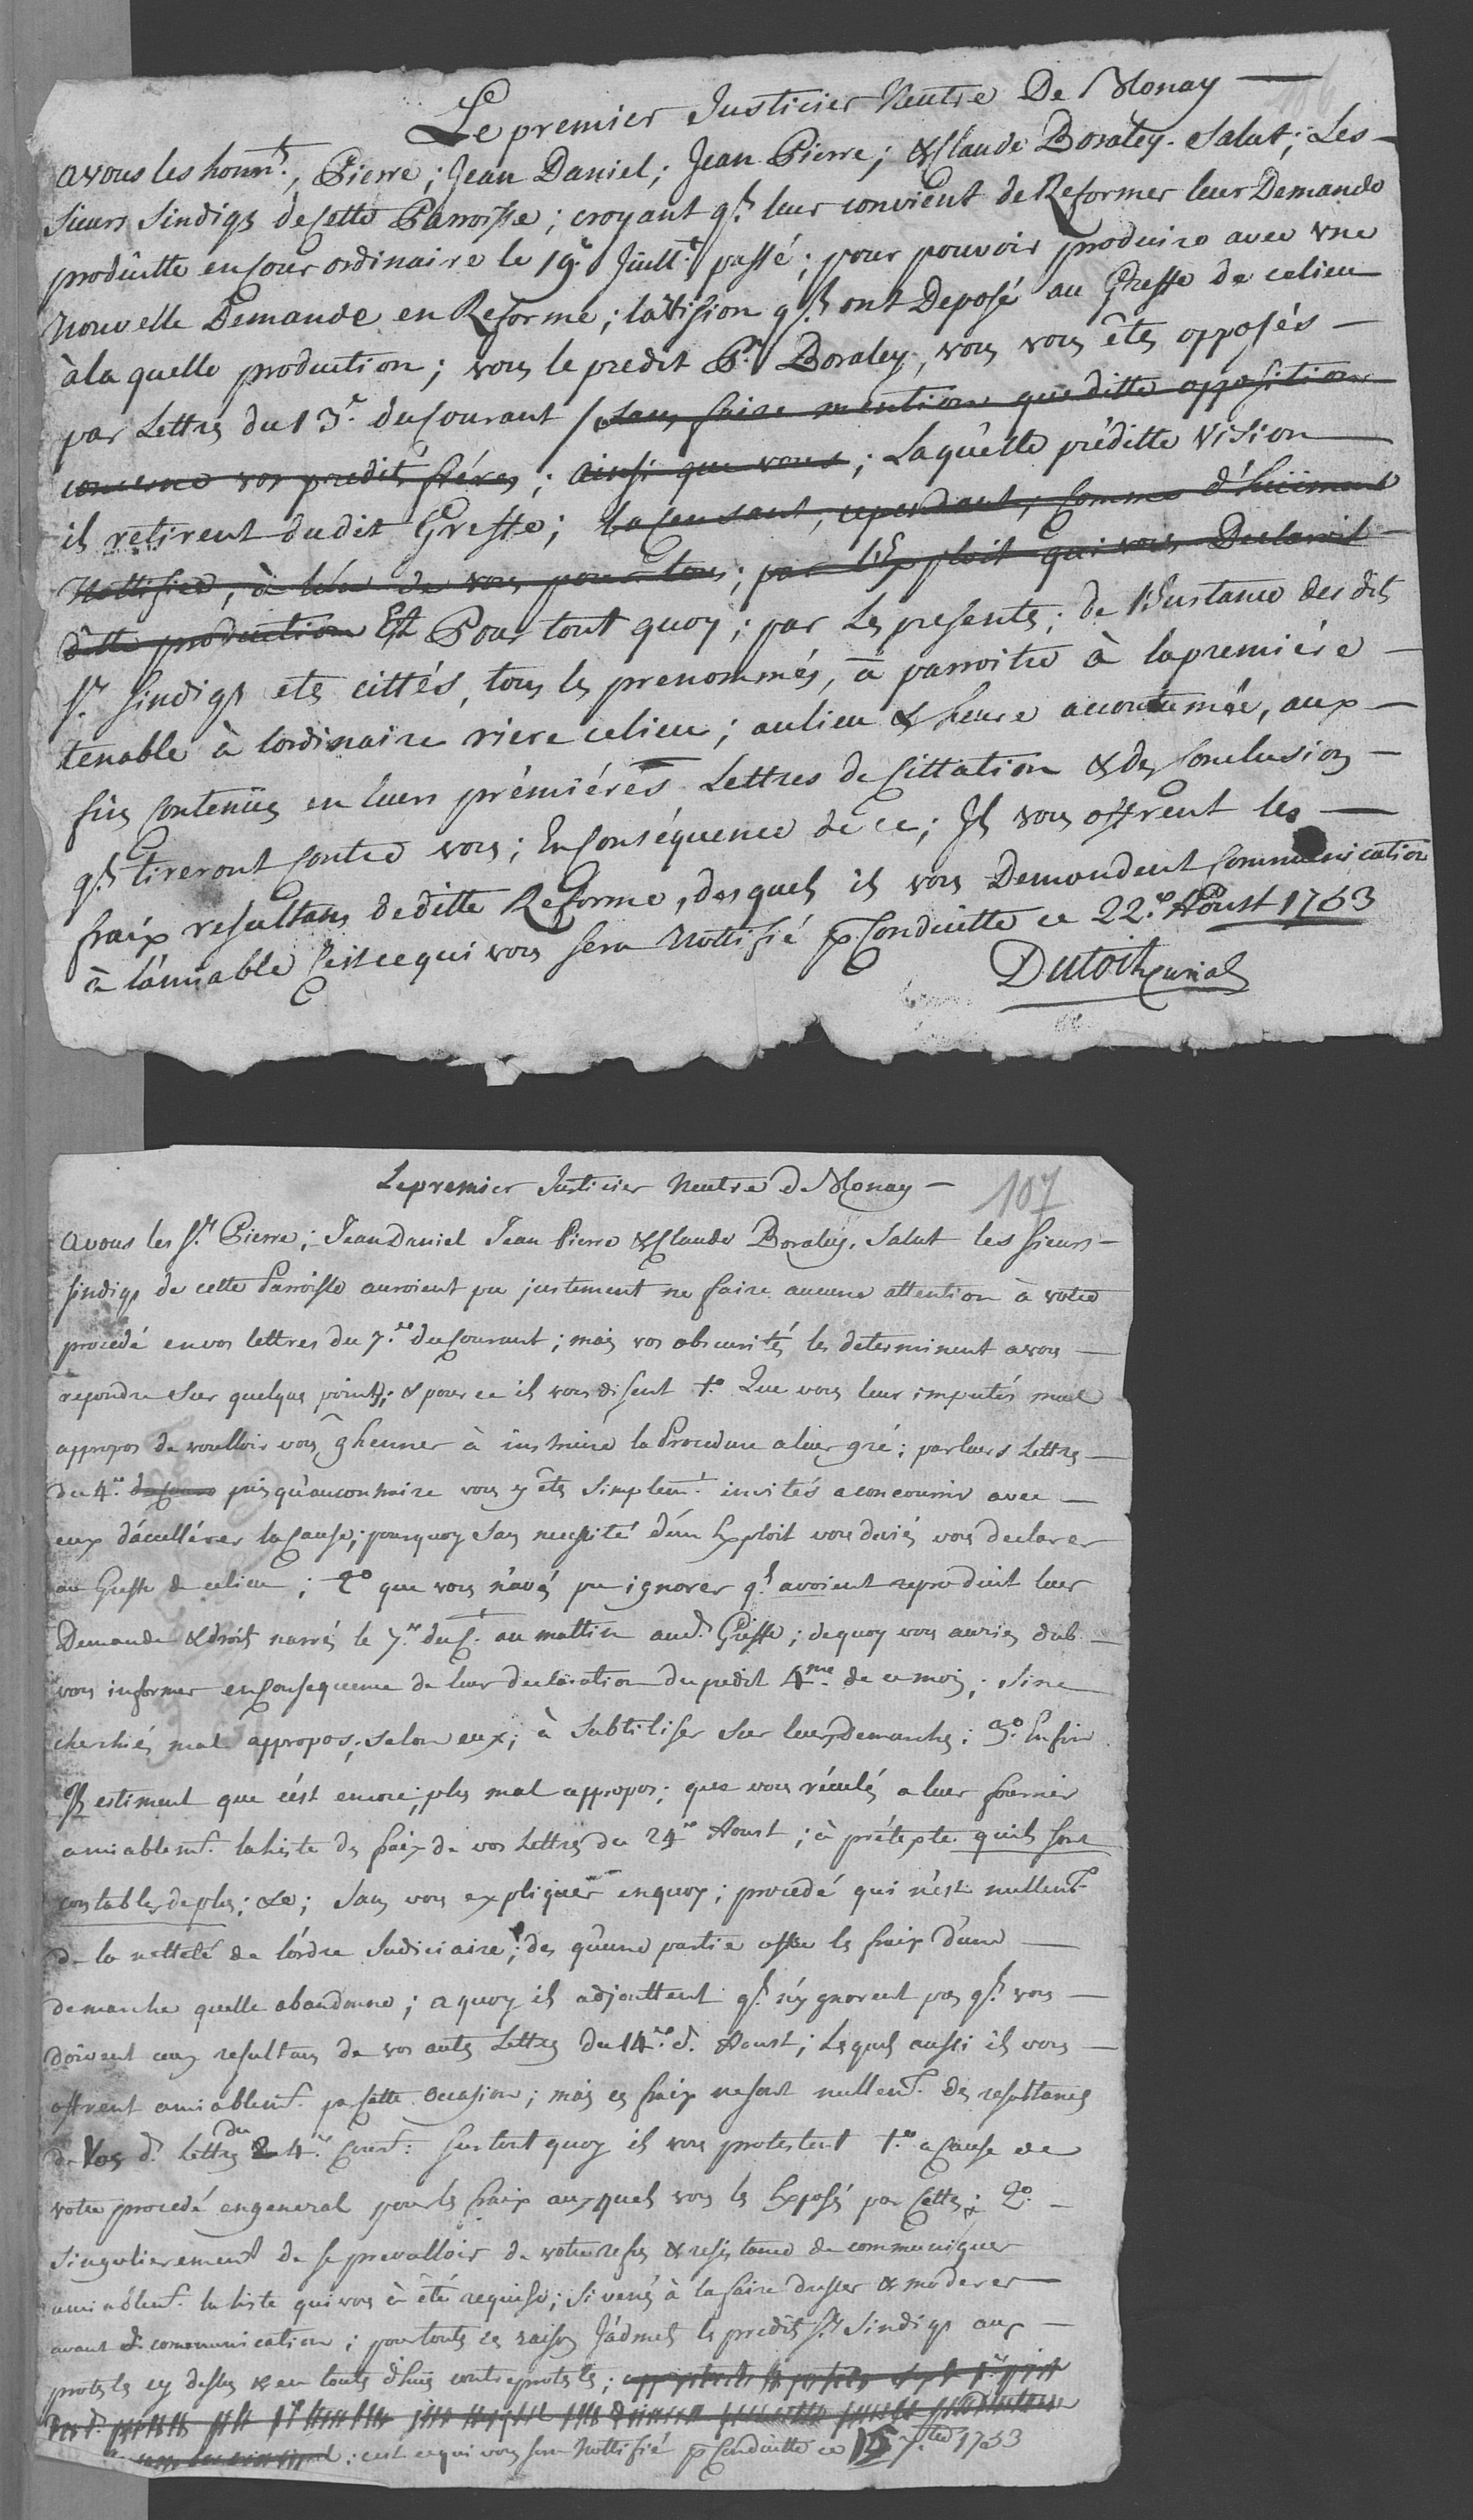 106
Le premier Justicier Neutre De Monay
a vous les honnr., Pierre; Jean Daniel; Jean Pierre; & Claude Boraley. Salut; Les
sieurs Sindiqs de Cette Parroisse; croyant q'ls leur convient de Reformer leur Demande
produitte en Cour ordinaire le 19e. Juill.t passé; pour pouvoir produire avec une
nouvelle Demande en Reforme; la Vision q'ls ont Deposé au Greffe de ce lieu
à la quelle production; vous le predit Pre. Boraley, vous vous êtes opposés
par Lettres du 13e. du Courant / sans faire mention que ditte opposition
concerne vos predits fréres; ainsi que vous; Laquelle préditte Vision
il retirent dudit Greffe; cependant, comme
Nottifiée, à l'un de vous pour tous; par l'Exploit qui vous Declaroit
ditte production Et Pour tout quoy; par Les presentes; de l'Instance des dits
Srs. Sindiqs etes cittés, tous les prenommés, à parroitre à la premiére
tenable à l'ordinaire riere ce lieu; au lieu & heure accoutumée, aux
fins Contenües en leurs prémiéres Lettres de Cittation & des Conclusions
q'ls tireront Contre vous; En Conséquence de Ce; Ils vous offrent les
fraix resultans de ditte Reforme, desquels ils vous Demandent Communication
à l'amiable C'est ce qui vous sera Nottifié p Conduitte ce 22.e Aoust 1763
Dutoit Curial
107
Le premier Justicier Neutre de Monay
a vous les Srs. Pierre; Jean Daniel Jean Pierre & Claude Boraley. Salut les sieurs
sindiqs de cette Parroisse auroient pu justement ne faire aucune attention à votre
procedé en vos lettres du 7.me du Courant; mais vos obscurités les determinent a vous
repondre sur quelques points; & pour ce il vous disent 1.o Que vous leur imputés mal
appropos de voulloir vous ghenner à instruire la Procedure a leur gré; par leurs Lettres
du 4.me du Cour puis qu'au contraire vous y êtes simplemt. invités a concourrir avec
eux d'accellérer la Cause; pourquoy sans necessité d'un Exploit vous deviés vous declarer
au Greffe de ce lieu; 2o que vous n'avés pu ignorer q'ls avoient reproduit leur
Demande & droits narrés le 7.me du Ct. au mattin aud. Greffe; de quoy vous auriés dub
vous informer en Consequence de leur declaration du predit 4me. de ce mois; sine
cherchiés mal appropos; selon eux; à Subtiliser sur leurs demarches; 3o. Enfin
Ils estiment que c'ést encore plus mal appropos; que vous réculés a leur fournir
amiablemt. la liste des fraix de vos Lettres du 24me Aoust; à prétexte quils sont
contables de plus; &c; sans vous expliquer en quoy; procedé qui n'est nullemt.
de la netteté de l'ordre Judiciaire; des qu'une partie offre les fraix d'une
demarche quelle abandonne; a quoy ils adjouttent q'ls n'ygnorent pas q'ls vous
doivent ceux resultans de vos autes Lettres du 14me. d. Aoust; Lequels aussi ils vous
offrent amiablemt. par Cette occasion; mais ces fraix ne sont nullemt. des resultances
de Vos d. Lettres du 24me. Court: sur tout quoy ils vous protestent 1.o a Cause de
votre procedé en general pour les fraix auxquels vous les Exposés par Cettes; 2o.
Singulierement de se prevalloir de votre refus & resistance de communiquer
amiablemt. la liste qui vous à été requise; si venés à la faire dresser & moderer
avant d. communication; pour touts ces raisons J'admets les predits Srs. Sindiqs aux
protestes cy dessus & en touts d'huis contreprotestes;
c'est ce qui vous sera Nottifié p Conduitte ce 15 7.bre 1763